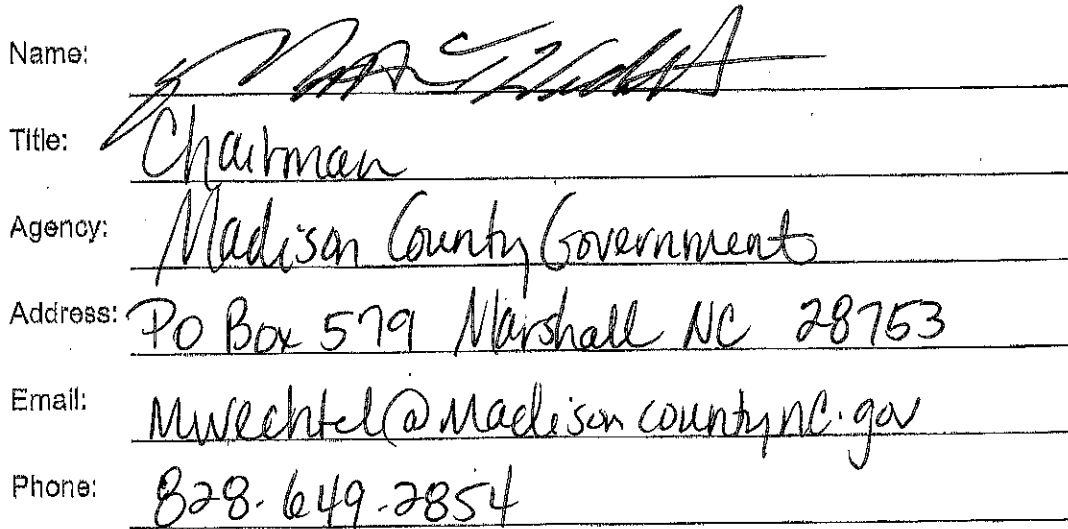 Name:
Title: Chairman
Agency: Madison County Government
Address: PO Box 579 Marshall NC 28753
Email: Mwechtel@madisoncountync.gov
Phone: 828-649-2854